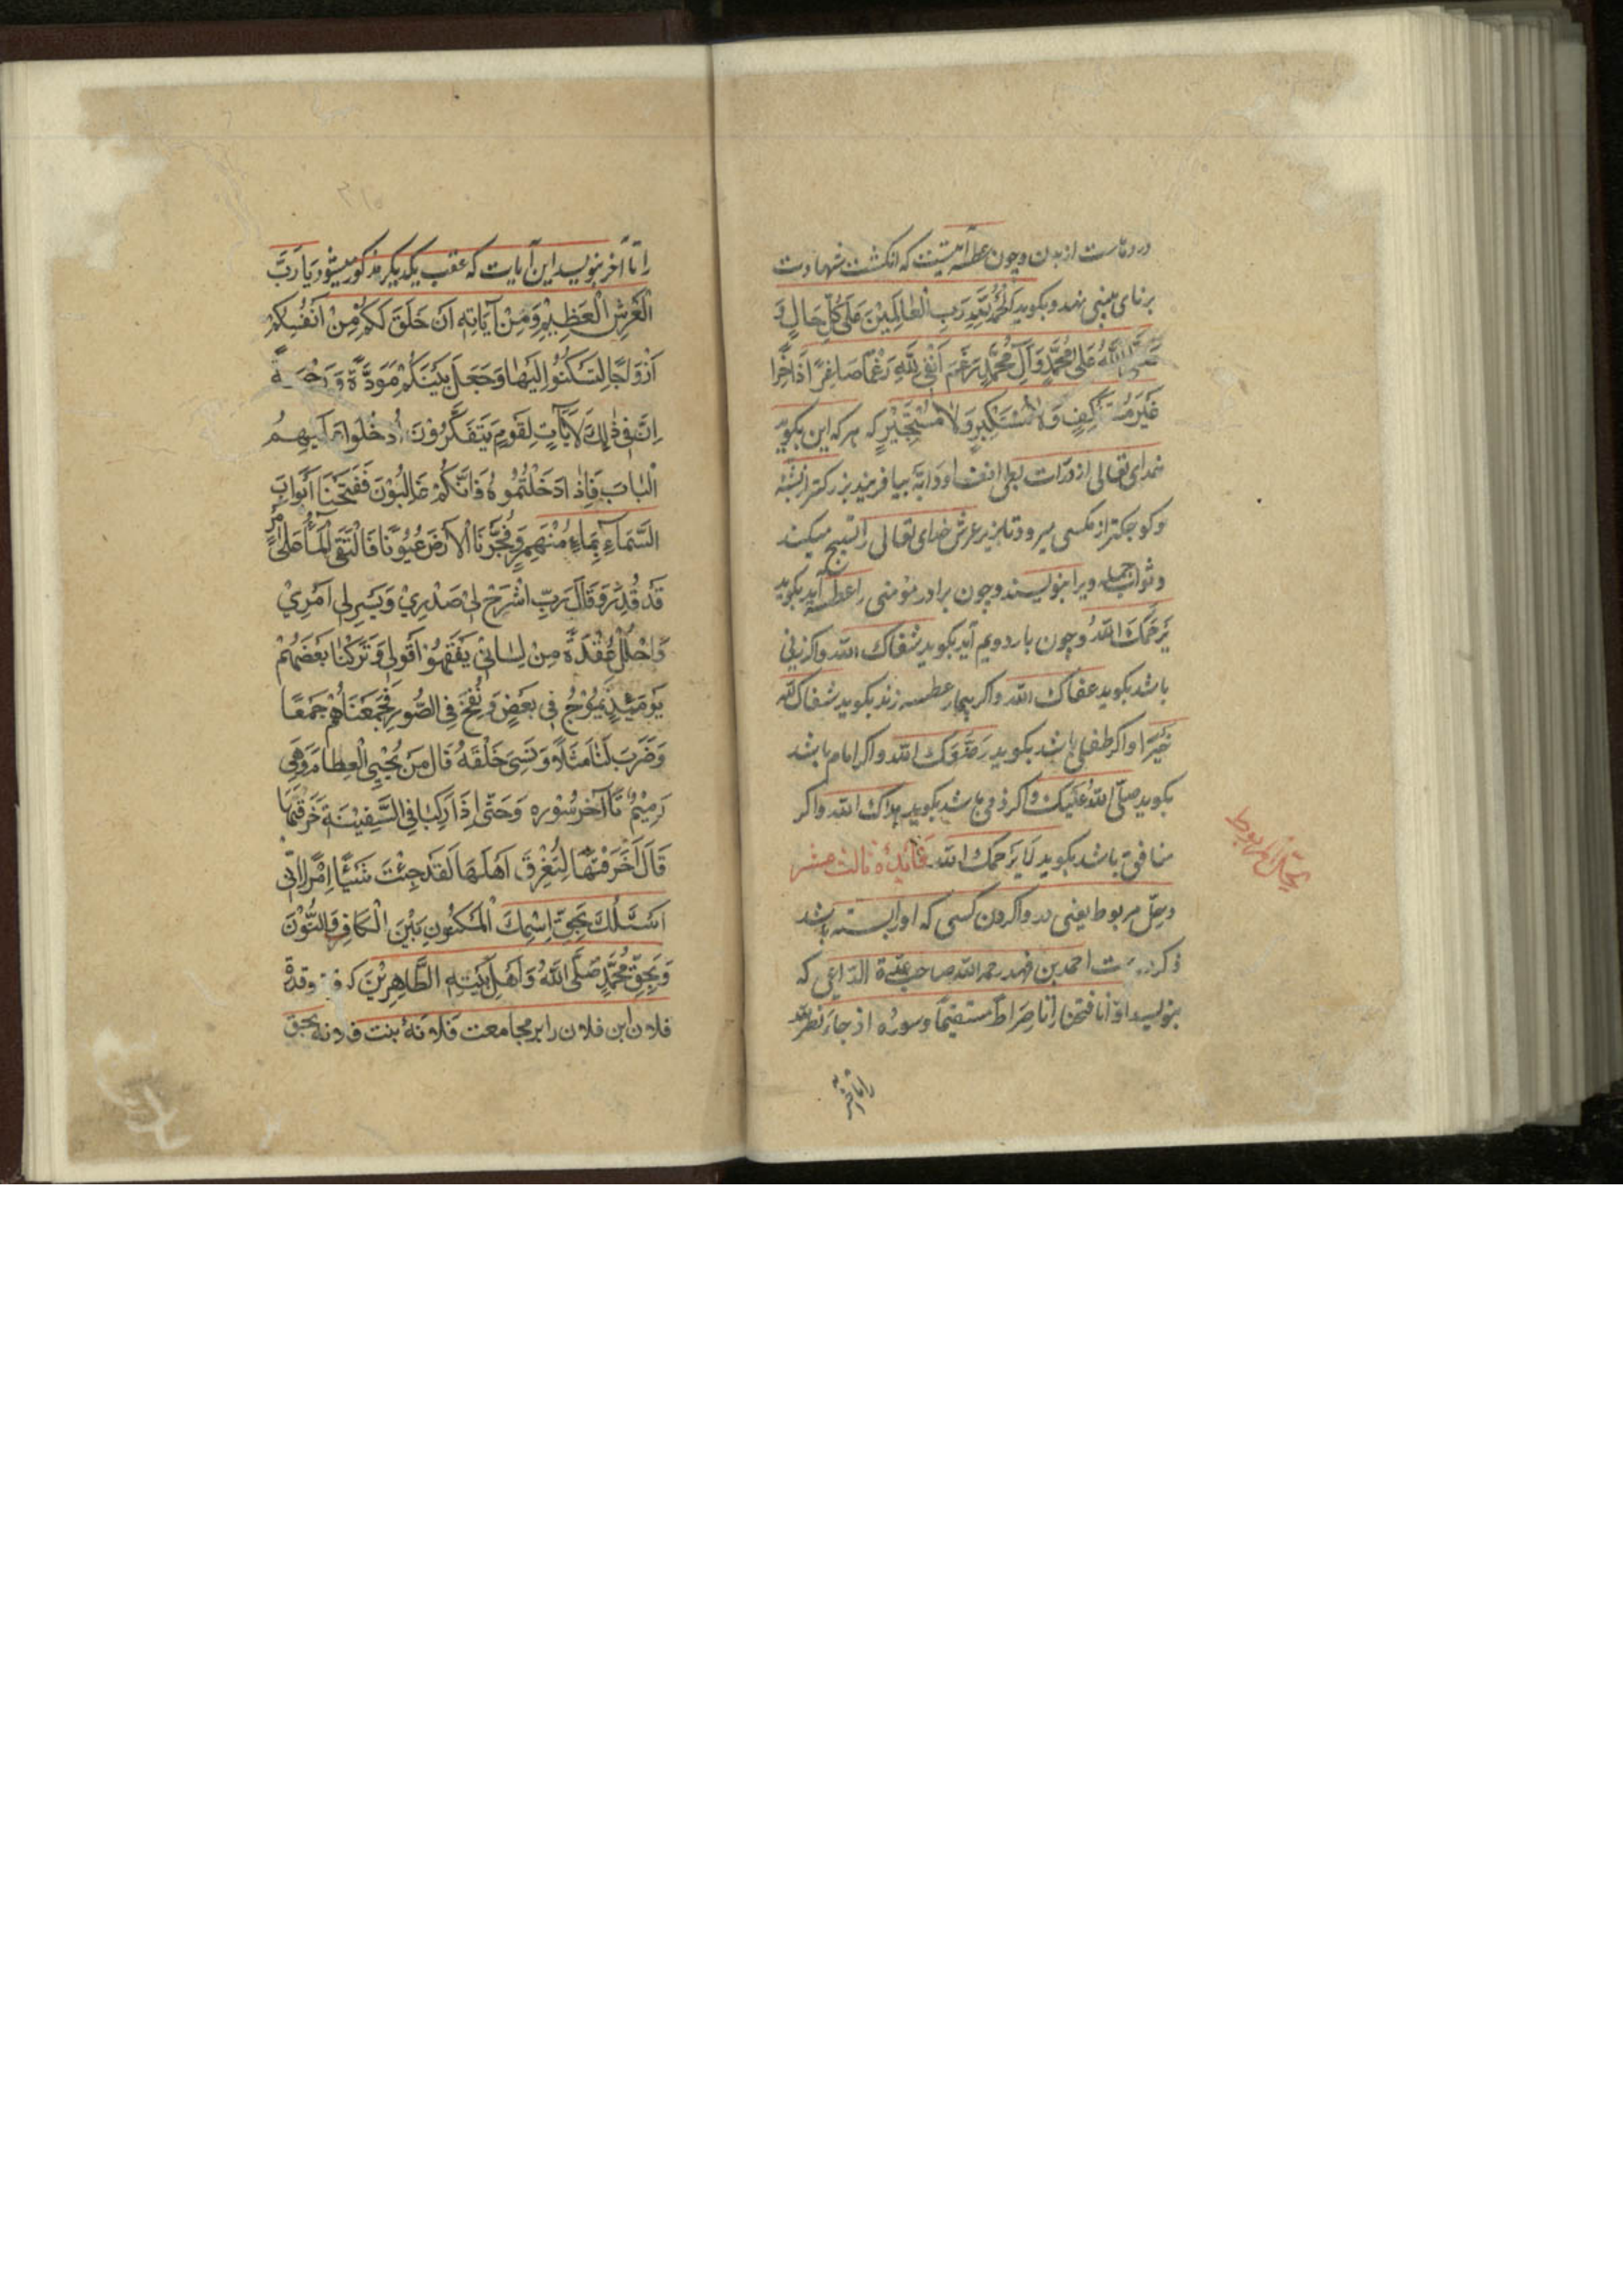 دردهاست از بدن و چون عطسه آید سنت که انکشت شهادت
بر نای بینی نهد و بکوید اَلحَمْدُ لِلّهِ رَبِّ الْعٰالَمِیْنَ عَلیٰ کُلِّ حَالٍ وَ
صَلَّی اللّٰهُ عَلیٰ مُحَمَّدٍ وَآلِ مُحَمَّدٍ رَغِمَ اَنْفِی لِلّٰهِ رَغْمًا صَاغِرًا دَاخِرًا
غَیْرَ مُسْتَنْکِفٍ وَلاٰ مُسْتَکْبِرٍ وَلاٰ مُسْتَجِیْرٍ که هر که این بکوید
خدای تعالی از ذرات بینی او دابّه بیافریند بزرکتر از پشه
و کوچکتر از مکسی میرود تا بزیر عرش خدای تعالی را تسبیح میکند
و ثواب جمله ویرا بنویسند و چون برادر مؤمنی را عطسه آید بکوید
یَرْحَمُکَ اللّٰهُ و چون بار دویم آید بکوید شفاک اللّه و اکر زنی
باشد بکوید عفاک اللّه و اکر بیمار عطسه زند بکوید شفاک اللّه
خَیْرًا و اکر طفلی باشد بکوید اللّه و اکر امام باشد
بکوید صلّی اللّهُ عَلَیْکَ و اکر ذمی باشد بکوید هداک اللّه و اکر
منافق باشد بکوید لَا یَرْحَمُکَ اللّه فائدهٔ ثالث عشر
در حلّ مربوط یعنی در واکردن کسی که او را بسته باشد
ذکر احمد بن فهد رحمه اللّه صاحب عدّة الدّاعی که
بنویسد اوّ انا فتحنا را تا صِرَاطًا مُستقیمًا و سورهٔ اذ جاء نصر اللّه
را تا آخر
مربوط
را تا آخر بنویسد این آیات که عقب یکدیکر مذکور میشود یَا رَبَّ
الْعَرْشِ الْعَظِیْمِ وَمِنْ آیَاتِهِ اَنْ خَلَقَ لَکُمْ مِنْ اَنْفُسِکُمْ
اَزْوَاجًا لِتَسْکُنُوا اِلَیْهَا وَجَعَلَ بَیْنَکُمْ مَوَدَّةً وَرَحْمَةً
اِنَّ فِی ذٰلِکَ لَاٰیَاتٍ لِقَوْمٍ یَتَفَکَّرُوْنَ اُدْخُلُوا عَلَیْهِمُ
الْبَابَ فَاِذَا دَخَلْتُمُوهُ فَاِنَّکُمْ غَالِبُوْنَ فَفَتَحْنَا اَبْوَابَ
السَّمَاءِ بِمَاءٍ مُنْهَمِرٍ وَفَجَّرْنَا الْاَرْضَ عُیُوْنًا فَالْتَقَی الْمَاءُ عَلیٰ اَمْرٍ
قَدْ قُدِرَ وَقَالَ رَبِّ اشْرَحْ لِی صَدْرِیْ وَیَسِّرْ لِی اَمْرِیْ
وَاحْلُلْ عُقْدَةً مِنْ لِسَانِیْ یَفْقَهُوْا قَوْلِی وَتَرَکْنَا بَعْضَهُمْ
یَوْمَئِذٍ یَمُوْجُ فِی بَعْضٍ وَنُفِخَ فِی الصُّوْرِ فَجَمَعْنَاهُمْ جَمْعًا
وَضَرَبَ لَنَا مَثَلًا وَنَسِیَ خَلْقَهُ قَالَ مَنْ یُحْیِی الْعِظَامَ وَهِیَ
رَمِیْمٌ تا آخر سُوْره وَحَتّٰی اِذَا رَکِبَا فِی السَّفِیْنَةِ خَرَقَهَا
قَالَ اَخَرَقْتَهَا لِتُغْرِقَ اَهْلَهَا لَقَدْ جِئْتَ شَیْئًا اِمْرًا اِنّی
اَسْئَلُکَ بِحَقِّ اِسْمِکَ الْمَکْنُونِ بَیْنَ الْکَافِ وَالنُّوْنَ
وَبِحَقِّ مُحَمَّدٍ صَلَّی اللّٰهُ وَاَهْلِ بَیْتِهِ الطَّاهِرِیْنَ که وقدة
فلان ابن فلان را بر مجامعت فلانهٔ بنت فلانه بحق